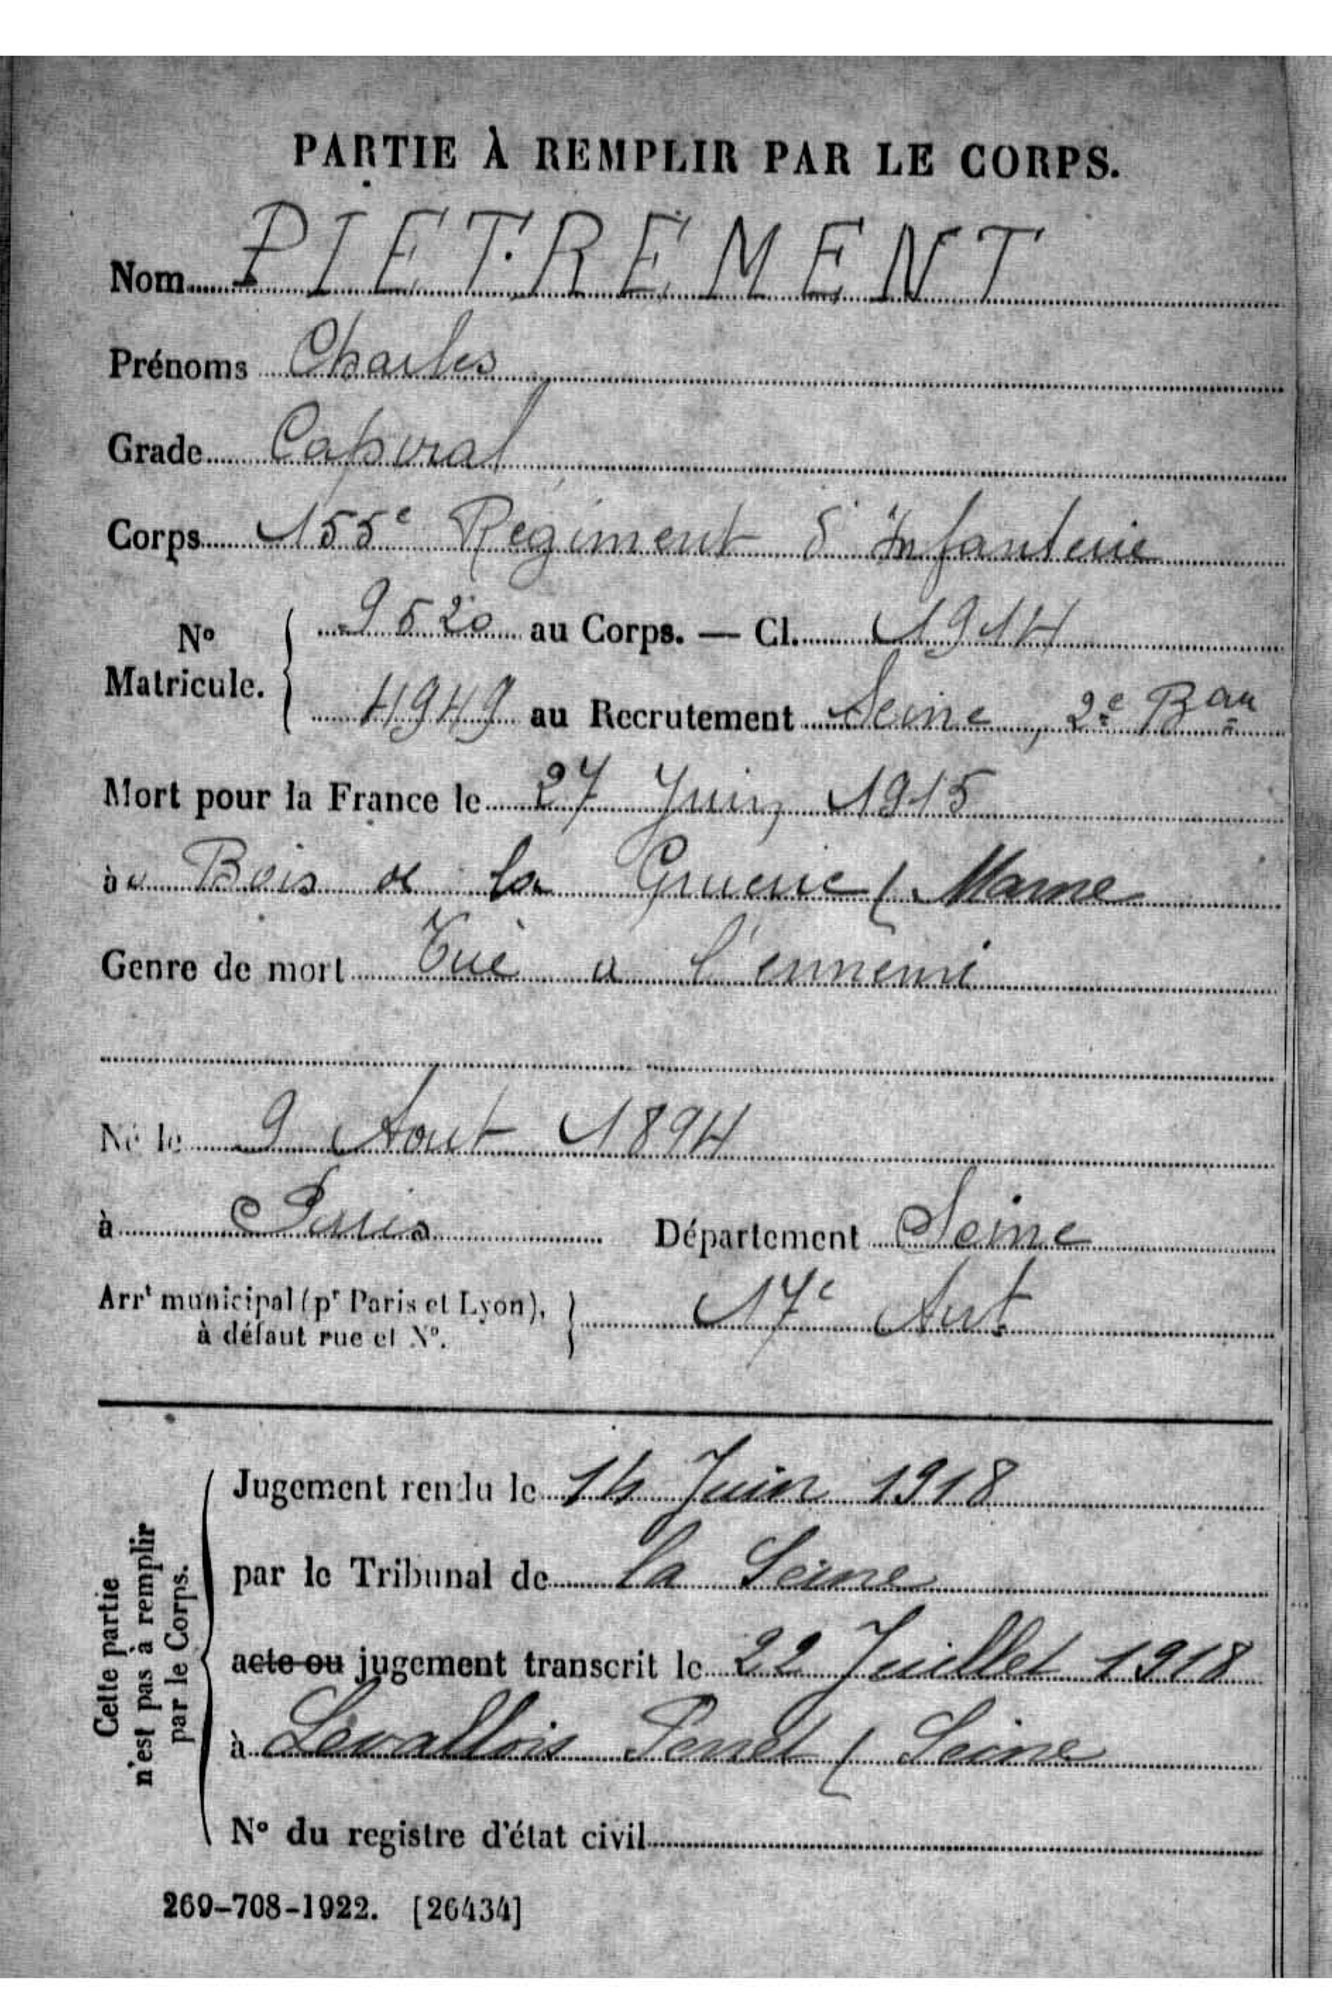 PARTIE À REMPLIR PAR LE CORPS.
Nom PIETREMENT
Prénoms Charles
Grade Caporal
Corps 155e Régiment d'Infanterie
No Matricule. 9520 au Corps. — Cl. 1914
4949 au Recrutement Seine, 2e Bau
Mort pour la France le 27 Juin 1915
àu Bois de la Gruerie (Marne
Genre de mort Tué a l'ennemi
Né le 9 Aout 1894
à Paris Département Seine
Arrt municipal (pr Paris et Lyon), 17e Arrt
à défaut rue et No.
Cette partie
n'est pas à remplir
par le Corps.
Jugement rendu le 14 Juin 1918
par le Tribunal de la Seine
acte ou jugement transcrit le 22 Juillet 1918
à Levallois Perret (Seine
No du registre d'état civil
269-708-1922. [26434]